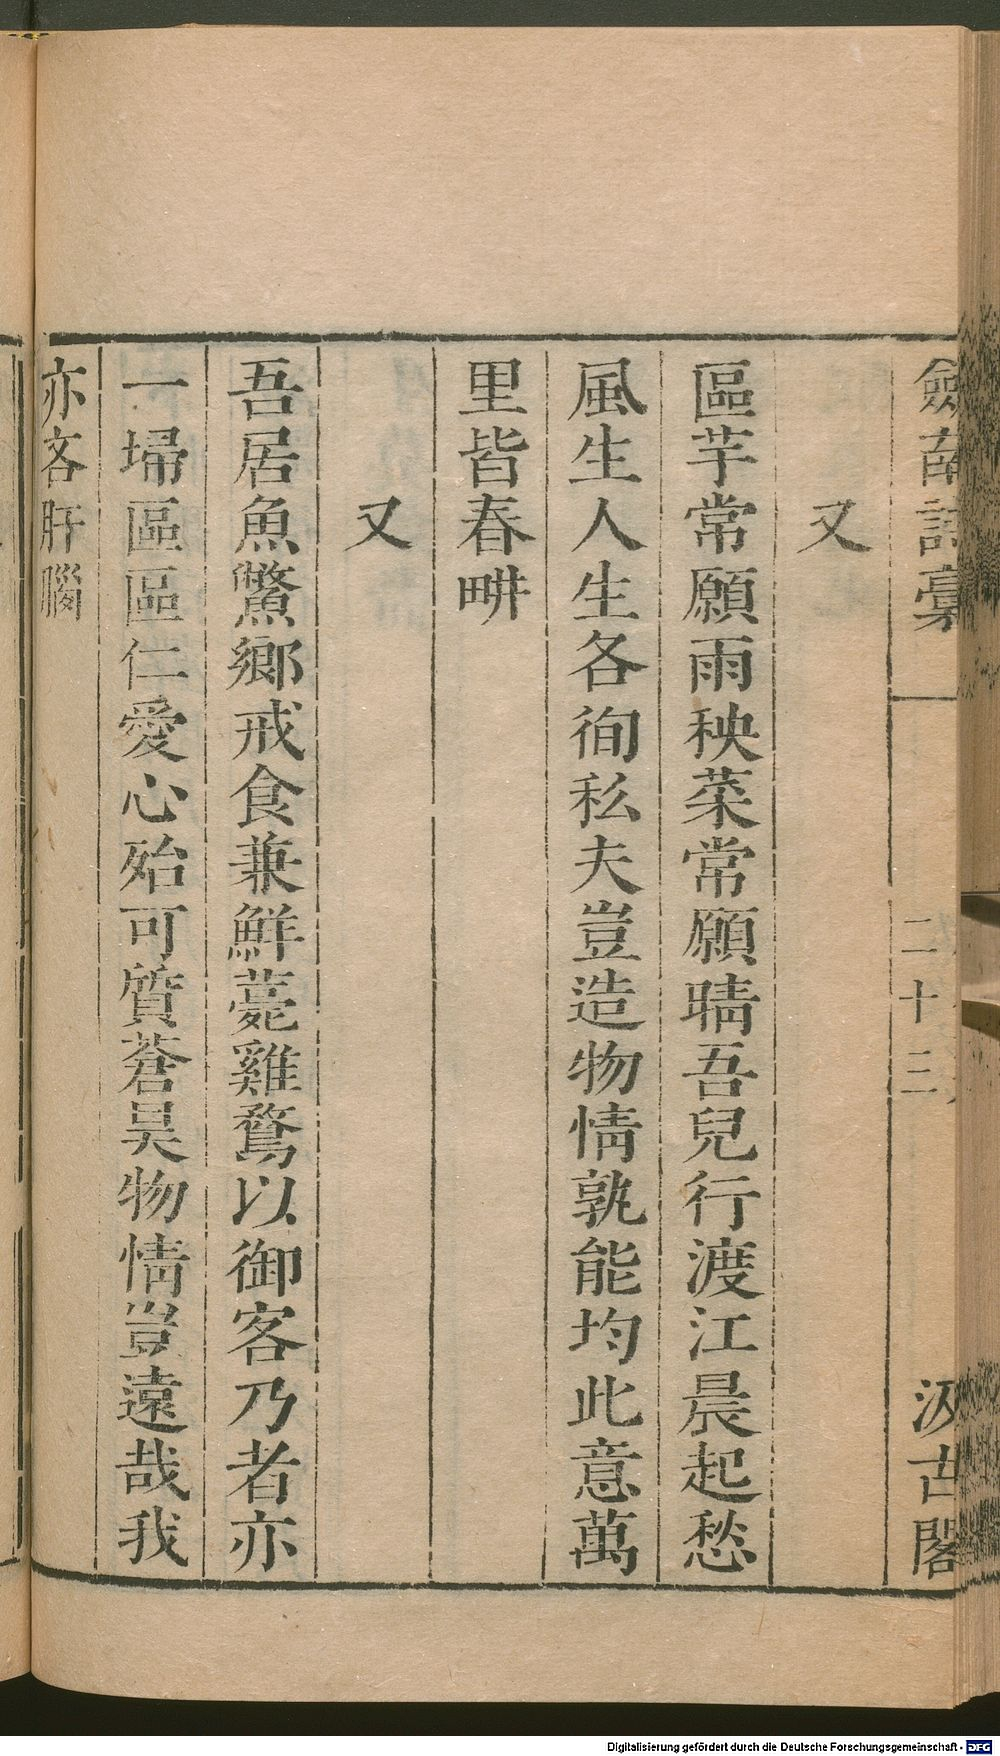 劍南詩稾
二十三
汲古閣
又
區芋常願雨秧菜常願晴吾兒行渡江晨起愁
風生人生各徇私夫豈造物情孰能均此意萬
里皆春畊
又
吾居魚鱉鄉戒食兼鮮薧雞鶩以御客乃者亦
一埽區區仁愛心殆可質蒼昊物情豈遠哉我
亦吝肝腦
Digitalisierung gefördert durch die Deutsche Forschungsgemeinschaft - DFG